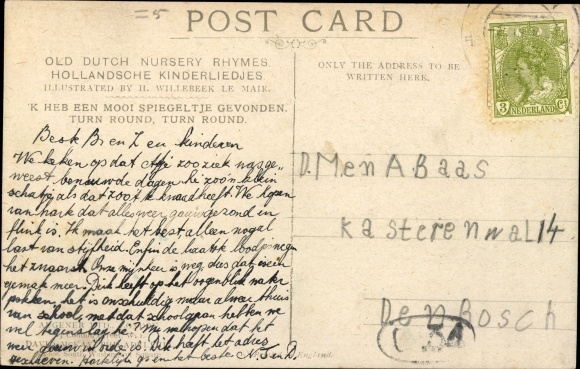 =5
POST CARD
OLD DUTCH NURSERY RHYMES.
HOLLANDSCHE KINDERLIEDJES.
ILLUSTRATED BY H. WILLEBEEK LE MAIR.
'K HEB EEN MOOI SPIEGELTJE GEVONDEN.
TURN ROUND, TURN ROUND.
ONLY THE ADDRESS TO BE
WRITTEN HERE.
3 NEDERLAND Ct
Beste B en Z en kinderen
We keken op dat zoo ziek was ge-
weest benauwde dagen he zoo'n klein
schatje als dat zoo'n te knaad heeft. We hopen
van hark dat alles weer gauw gezond en
flink is. Ik maak het best alleen nogal
last van stijfheid. Enfin de laatste loodjes wegen
het zwaarst. Onze is weg, dus dat is één
gemak meer. Dick heeft op het oogenblik water
pokken, het is onschuldig maar alweer thuis
van school, met dat schoolgaan hebben we
wel tegenslag he? Nu we hopen dat het
weer gauw in orde is. Dick heeft het adres
geschreven. Hartelijk gr en het beste N. T en D.
D. Men A Baas
Kasterenwal 14
Den Bosch
England.